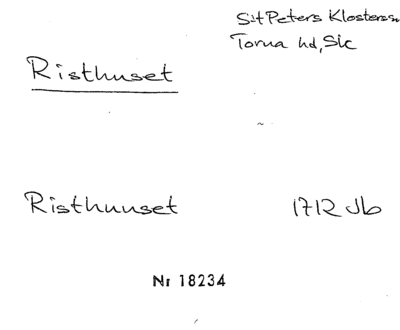 S:t Peters Klosters sn
Torna hd, Sk
Risthuset
Risthuuset 1712 Jb
Nr 18234